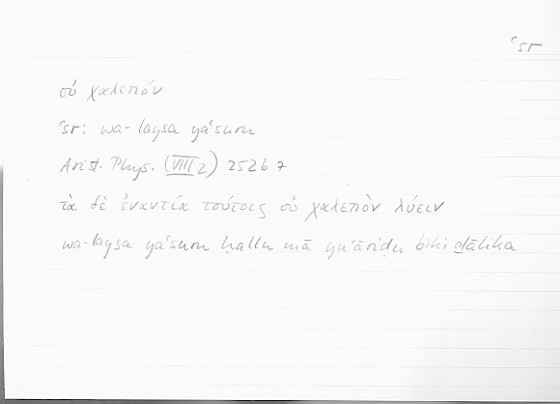 ʿsr
οὐ χαλεπόν
ʿsr: wa-laysa yaʿsuru
Arist. Phys. (VIII 2) 252b7
τὰ δὲ ἐναντία τούτοις οὐ χαλεπὸν λύειν
wa-laysa yaʿsuru ḥallu mā yuʿāriḍu bihi ḏālika